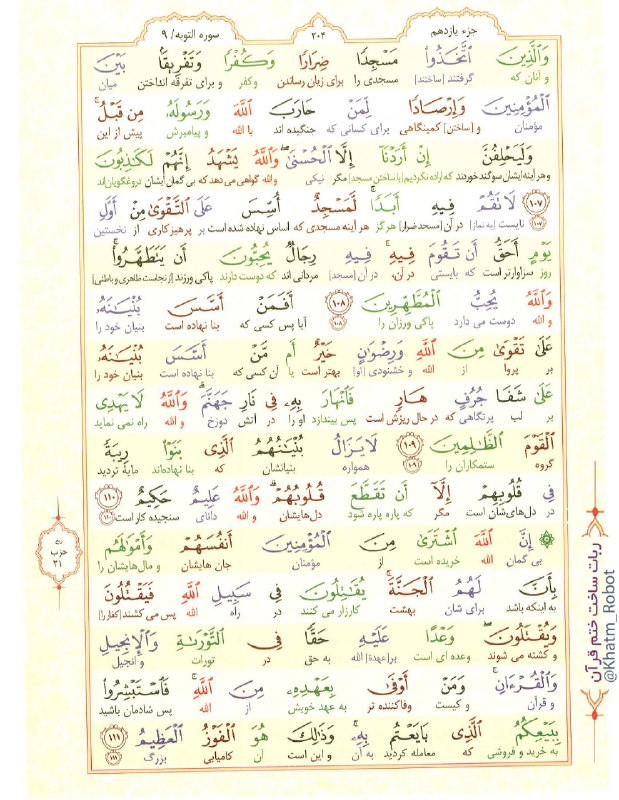 جزء یازدهم
۲۰۴
سوره التوبه/ ۹
وَٱلَّذِينَ ٱتَّخَذُوا۟ مَسْجِدًا ضِرَارًا وَكُفْرًا وَتَفْرِيقًۢا بَيْنَ
و آنان که گرفتند [ساختند] مسجدی را برای زیان رساندن وکفر و برای تفرقه انداختن میان
ٱلْمُؤْمِنِينَ وَإِرْصَادًا لِّمَنْ حَارَبَ ٱللَّهَ وَرَسُولَهُۥ مِن قَبْلُ ۚ
مؤمنان و [ساختن] کمینگاهی برای کسانی که جنگیده اند با الله و پیامبرش پیش از این
وَلَيَحْلِفُنَّ إِنْ أَرَدْنَآ إِلَّا ٱلْحُسْنَىٰ ۖ وَٱللَّهُ يَشْهَدُ إِنَّهُمْ لَكَٰذِبُونَ
و هر آینه ایشان سوگند خوردند که اراده نکردیم [با ساختن مسجد] مگر نیکی و الله گواهی می دهد که بی گمان ایشان دروغگویان‌اند
﴿۱۰۷﴾ لَا تَقُمْ فِيهِ أَبَدًا ۚ لَّمَسْجِدٌ أُسِّسَ عَلَى ٱلتَّقْوَىٰ مِنْ أَوَّلِ
﴿۱۰۷﴾ نایست [به نماز] در آن [مسجد ضرار] هرگز هر آینه مسجدی که اساس نهاده شده است بر پرهیز کاری از نخستین
يَوْمٍ أَحَقُّ أَن تَقُومَ فِيهِ ۚ فِيهِ رِجَالٌ يُحِبُّونَ أَن يَتَطَهَّرُوا۟ ۚ
روز سزاوارتر است که بایستی در آن، در آن [مسجد] مردانی اند که دوست دارند پاکی ورزند [از نجاست ظاهری و باطنی]
وَٱللَّهُ يُحِبُّ ٱلْمُطَّهِّرِينَ ﴿۱۰۸﴾ أَفَمَنْ أَسَّسَ بُنْيَٰنَهُۥ
و الله دوست می دارد پاکی ورزان را ﴿۱۰۸﴾ آیا پس کسی که بنا نهاده است بنیان خود را
عَلَىٰ تَقْوَىٰ مِنَ ٱللَّهِ وَرِضْوَٰنٍ خَيْرٌ أَم مَّنْ أَسَّسَ بُنْيَٰنَهُۥ
بر پروا از الله و خشنودی [او] بهتر است یا آن کسی که بنا نهاده است بنیان خود را
عَلَىٰ شَفَا جُرُفٍ هَارٍ فَٱنْهَارَ بِهِۦ فِى نَارِ جَهَنَّمَ ۗ وَٱللَّهُ لَا يَهْدِى
بر لب پرتگاهی که در حال ریزش است پس بیندازد او را در آتش دوزخ و الله راه نمی نماید
ٱلْقَوْمَ ٱلظَّٰلِمِينَ ﴿۱۰۹﴾ لَا يَزَالُ بُنْيَٰنُهُمُ ٱلَّذِى بَنَوْا۟ رِيبَةً
گروه ستمکاران را ﴿۱۰۹﴾ همواره بنیانشان که بنا نهاده‌اند مایهٔ تردید
فِى قُلُوبِهِمْ إِلَّآ أَن تَقَطَّعَ قُلُوبُهُمْ ۗ وَٱللَّهُ عَلِيمٌ حَكِيمٌ ﴿۱۱۰﴾
در دل‌های‌شان است مگر که پاره پاره شود دل‌هایشان و الله دانای سنجیده کار است ﴿۱۱۰﴾
إِنَّ ٱللَّهَ ٱشْتَرَىٰ مِنَ ٱلْمُؤْمِنِينَ أَنفُسَهُمْ وَأَمْوَٰلَهُم
بی گمان الله خریده است از مؤمنان جان هایشان و مال‌هایشان را
بِأَنَّ لَهُمُ ٱلْجَنَّةَ ۚ يُقَٰتِلُونَ فِى سَبِيلِ ٱللَّهِ فَيَقْتُلُونَ
به اینکه باشد برای شان بهشت کارزار می کنند در راه الله پس می کشند [کفار را]
وَيُقْتَلُونَ ۖ وَعْدًا عَلَيْهِ حَقًّا فِى ٱلتَّوْرَىٰةِ وَٱلْإِنجِيلِ
و کشته می شوند وعده ای است بر [عهدهٔ] الله به حق در تورات و انجیل
وَٱلْقُرْءَانِ ۚ وَمَنْ أَوْفَىٰ بِعَهْدِهِۦ مِنَ ٱللَّهِ ۚ فَٱسْتَبْشِرُوا۟
و قرآن و کیست وفاکننده تر به عهد خویش از الله پس شادمان باشید
بِبَيْعِكُمُ ٱلَّذِى بَايَعْتُم بِهِۦ ۚ وَذَٰلِكَ هُوَ ٱلْفَوْزُ ٱلْعَظِيمُ ﴿۱۱۱﴾
به خرید و فروشی که معامله کردید به آن و این است آن کامیابی بزرگ ﴿۱۱۱﴾
ربع
حزب
۲۱
ربات ساخت ختم قرآن
@Khatm_Robot